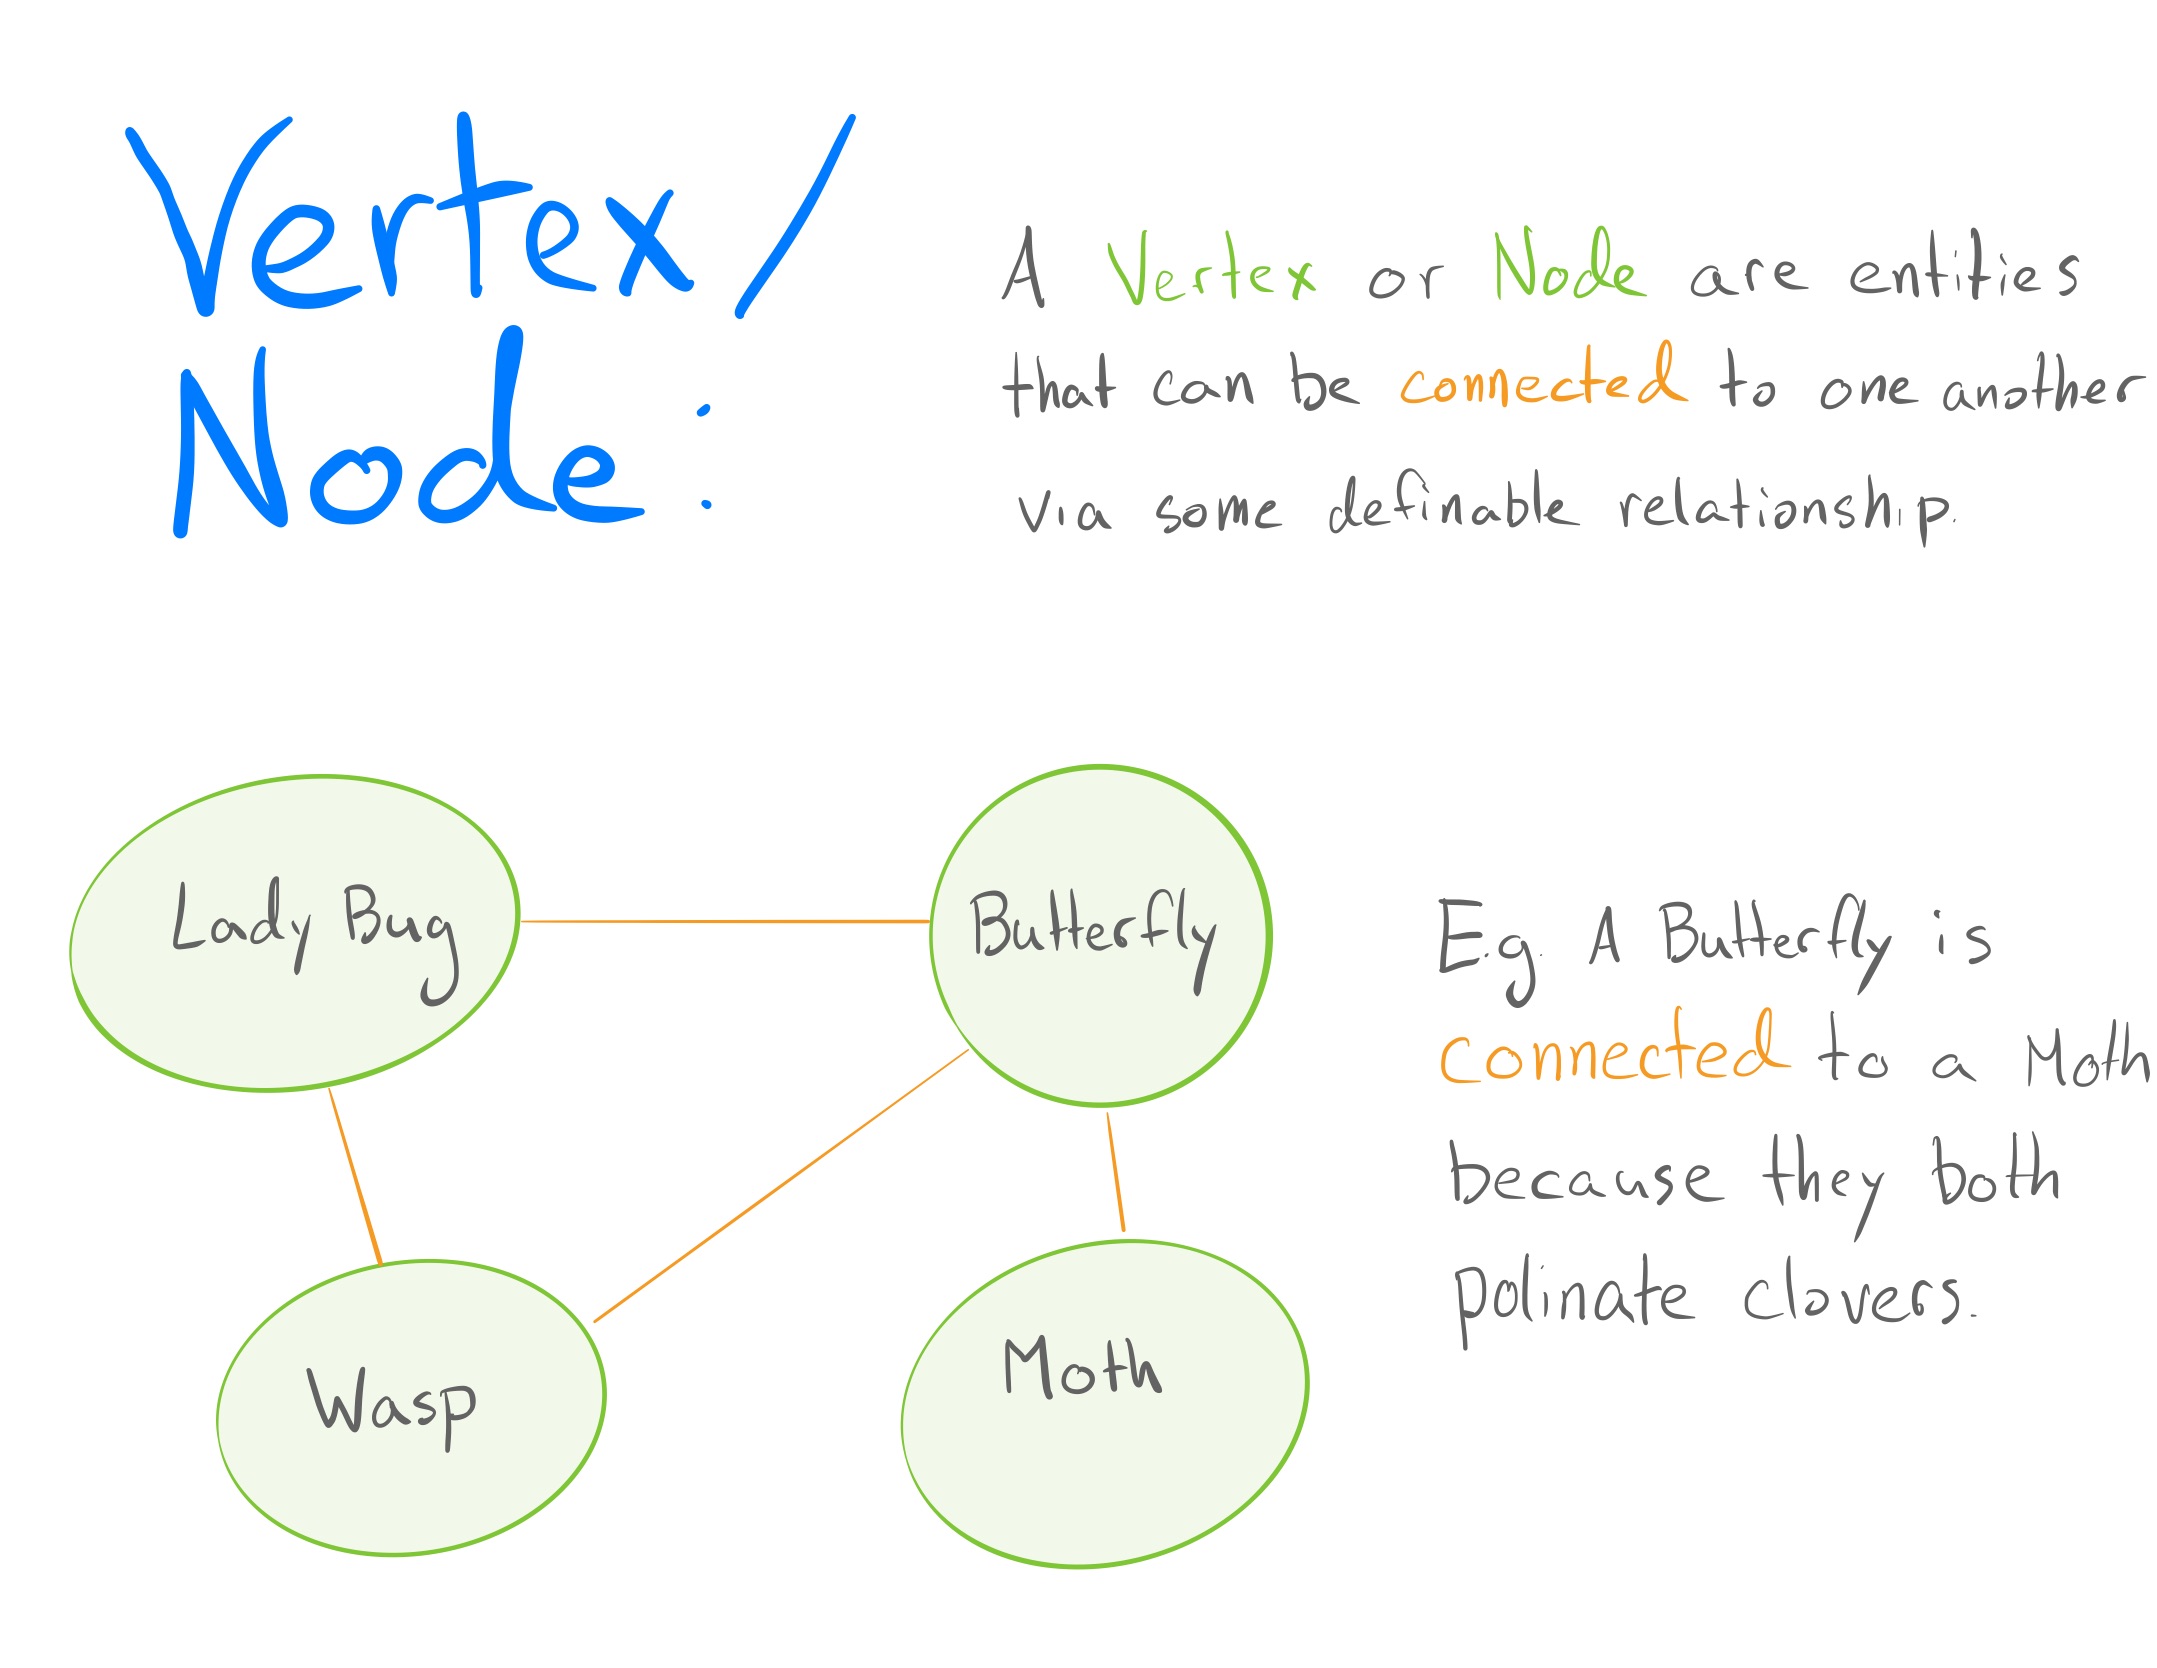 Vertex/
Node:
A Vertex or Node are entities
that can be connected to one another
via some definable relationship.
Lady Bug
Butterfly
E.g. A Butterfly is
connected to a Moth
because they both
polinate clovers.
Wasp
Moth